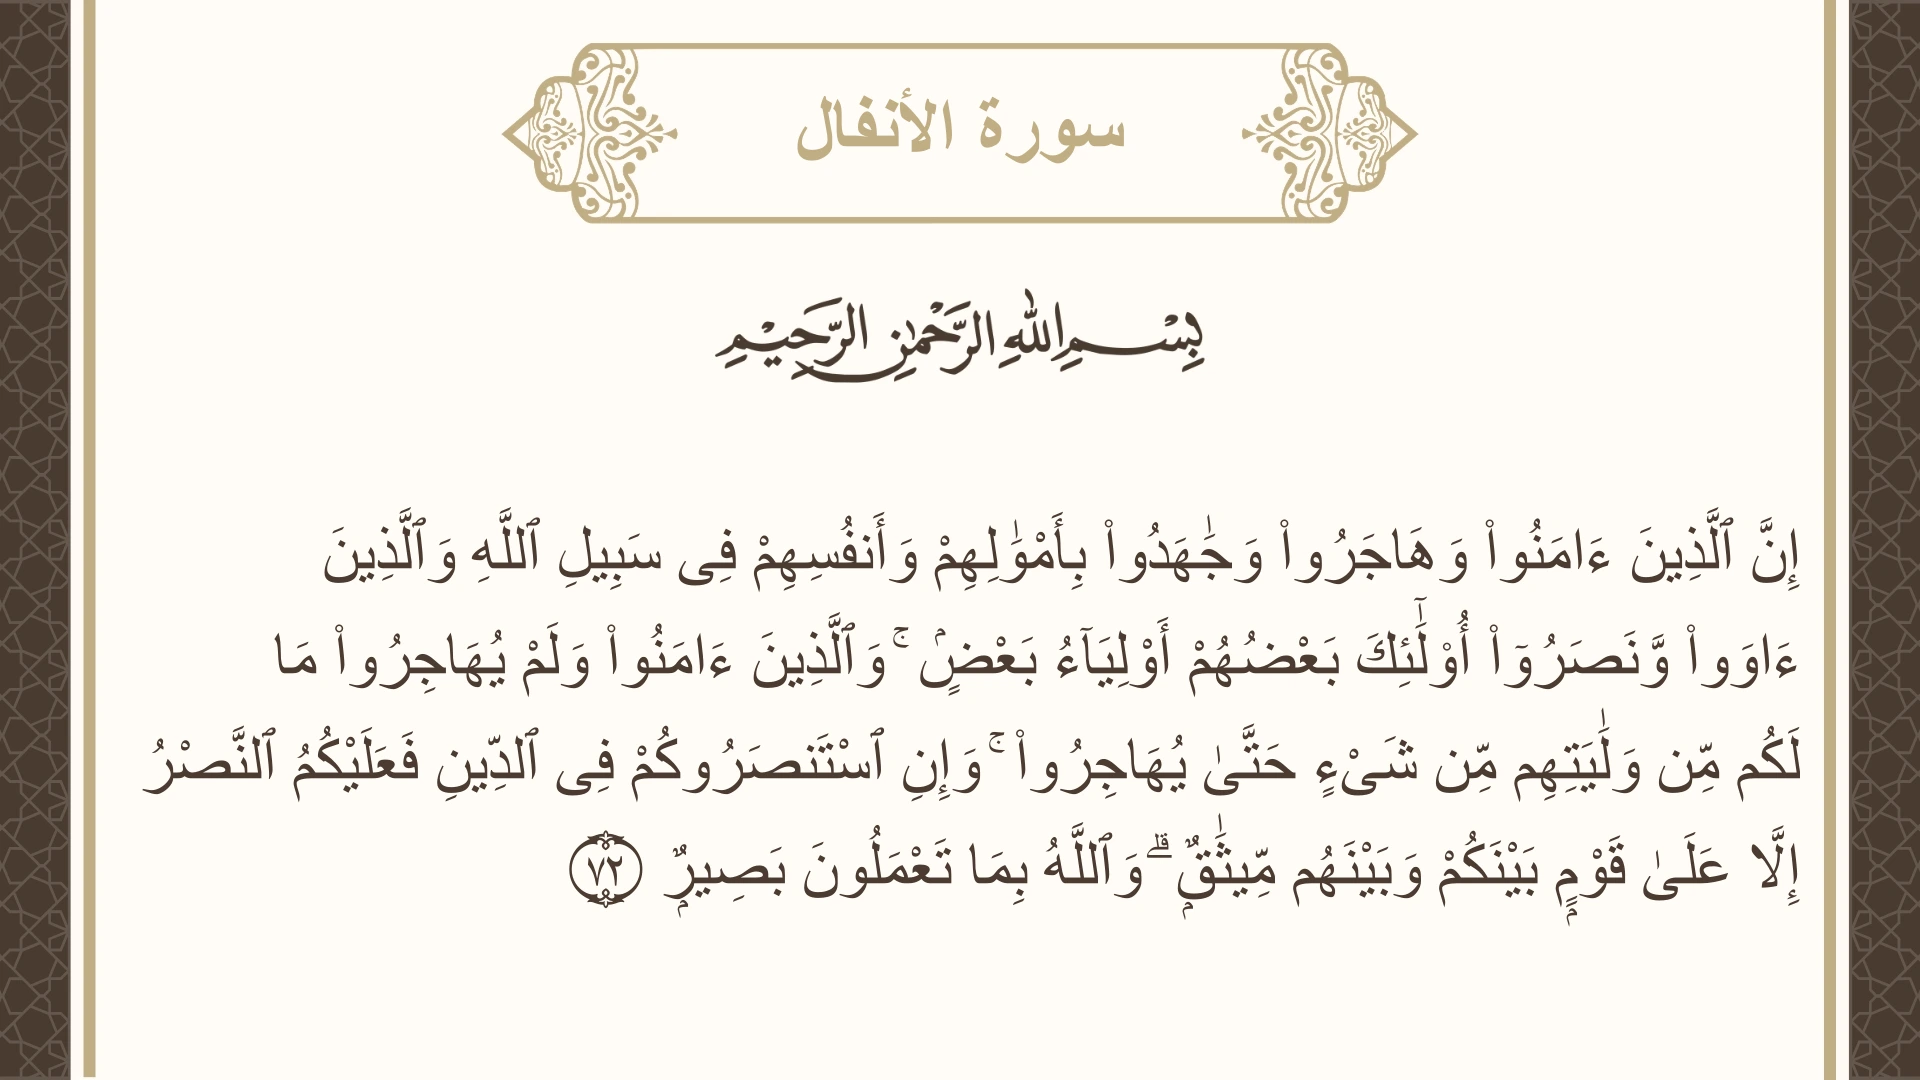 سورة الأنفال
بِسْمِ اللهِ الرَّحْمٰنِ الرَّحِيْمِ
إِنَّ ٱلَّذِينَ ءَامَنُوا۟ وَهَاجَرُوا۟ وَجَٰهَدُوا۟ بِأَمْوَٰلِهِمْ وَأَنفُسِهِمْ فِى سَبِيلِ ٱللَّهِ وَٱلَّذِينَ
ءَاوَوا۟ وَّنَصَرُوٓا۟ أُو۟لَٰٓئِكَ بَعْضُهُمْ أَوْلِيَآءُ بَعْضٍۢ ۚ وَٱلَّذِينَ ءَامَنُوا۟ وَلَمْ يُهَاجِرُوا۟ مَا
لَكُم مِّن وَلَٰيَتِهِم مِّن شَىْءٍ حَتَّىٰ يُهَاجِرُوا۟ ۚ وَإِنِ ٱسْتَنصَرُوكُمْ فِى ٱلدِّينِ فَعَلَيْكُمُ ٱلنَّصْرُ
إِلَّا عَلَىٰ قَوْمٍۭ بَيْنَكُمْ وَبَيْنَهُم مِّيثَٰقٌۭ ۗ وَٱللَّهُ بِمَا تَعْمَلُونَ بَصِيرٌۭ ٧٢